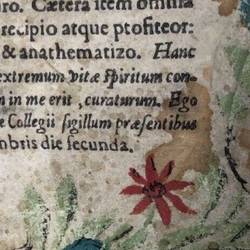 ro. Cætera item omnia
recipio atque profiteor:
& anathematizo. Hanc
extremum vitæ spiritum con-
n in me erit, curaturum. Ego
e Collegii sigillum præsentibus
mbris die secunda.